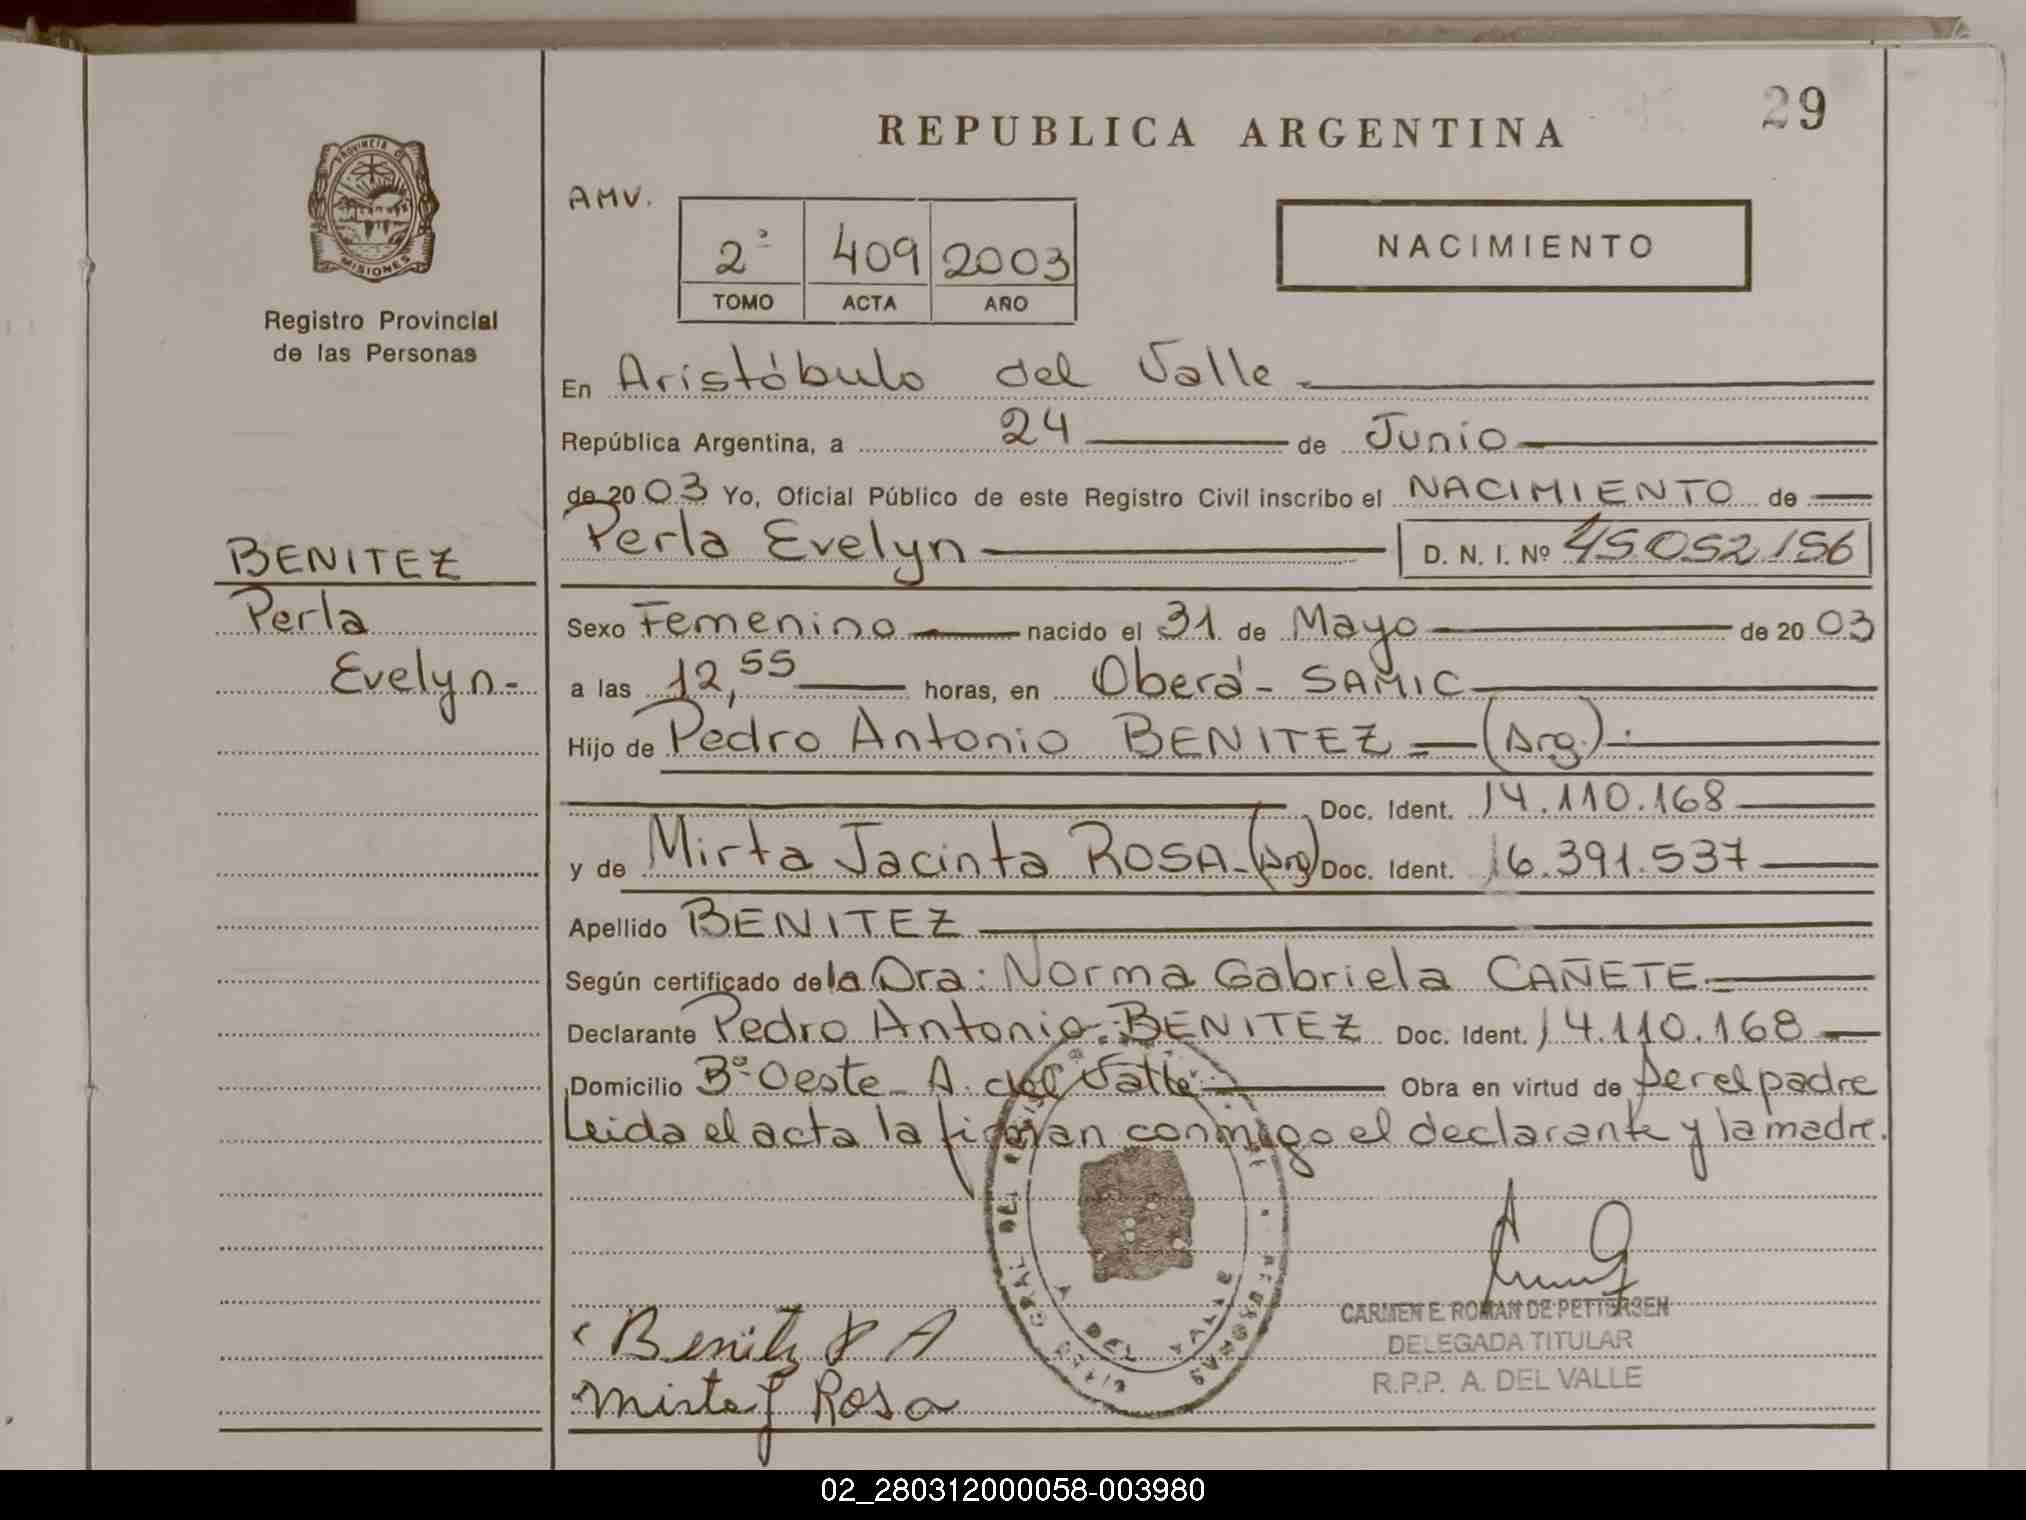 29
REPUBLICA ARGENTINA
PROVINCIA DE
MISIONES
Registro Provincial
de las Personas
AMV.
NACIMIENTO
2º 409 2003
TOMO ACTA AÑO
En Aristóbulo del Valle
República Argentina, a 24 de Junio
de 2003 Yo, Oficial Público de este Registro Civil inscribo el NACIMIENTO de
Perla Evelyn D. N. I. Nº 45052156
BENITEZ
Perla
Evelyn-
Sexo Femenino nacido el 31 de Mayo de 2003
a las 12,55 horas, en Oberá - SAMIC
Hijo de Pedro Antonio BENITEZ = (Arg.)
Doc. Ident. 14.110.168
y de Mirta Jacinta ROSA-(Arg) Doc. Ident. 16.391.537
Apellido BENITEZ
Según certificado de la Dra: Norma Gabriela CAÑETE
Declarante Pedro Antonio BENITEZ Doc. Ident. 14.110.168
Domicilio Bº Oeste - A. del Valle Obra en virtud de ser el padre
Leida el acta la firman conmigo el declarante y la madre.
A. DEL VALLE
Benitz P A
Mirta J Rosa
CARMEN E. ROMAN DE PETTERSEN
DELEGADA TITULAR
R.P.P. A. DEL VALLE
02_280312000058-003980